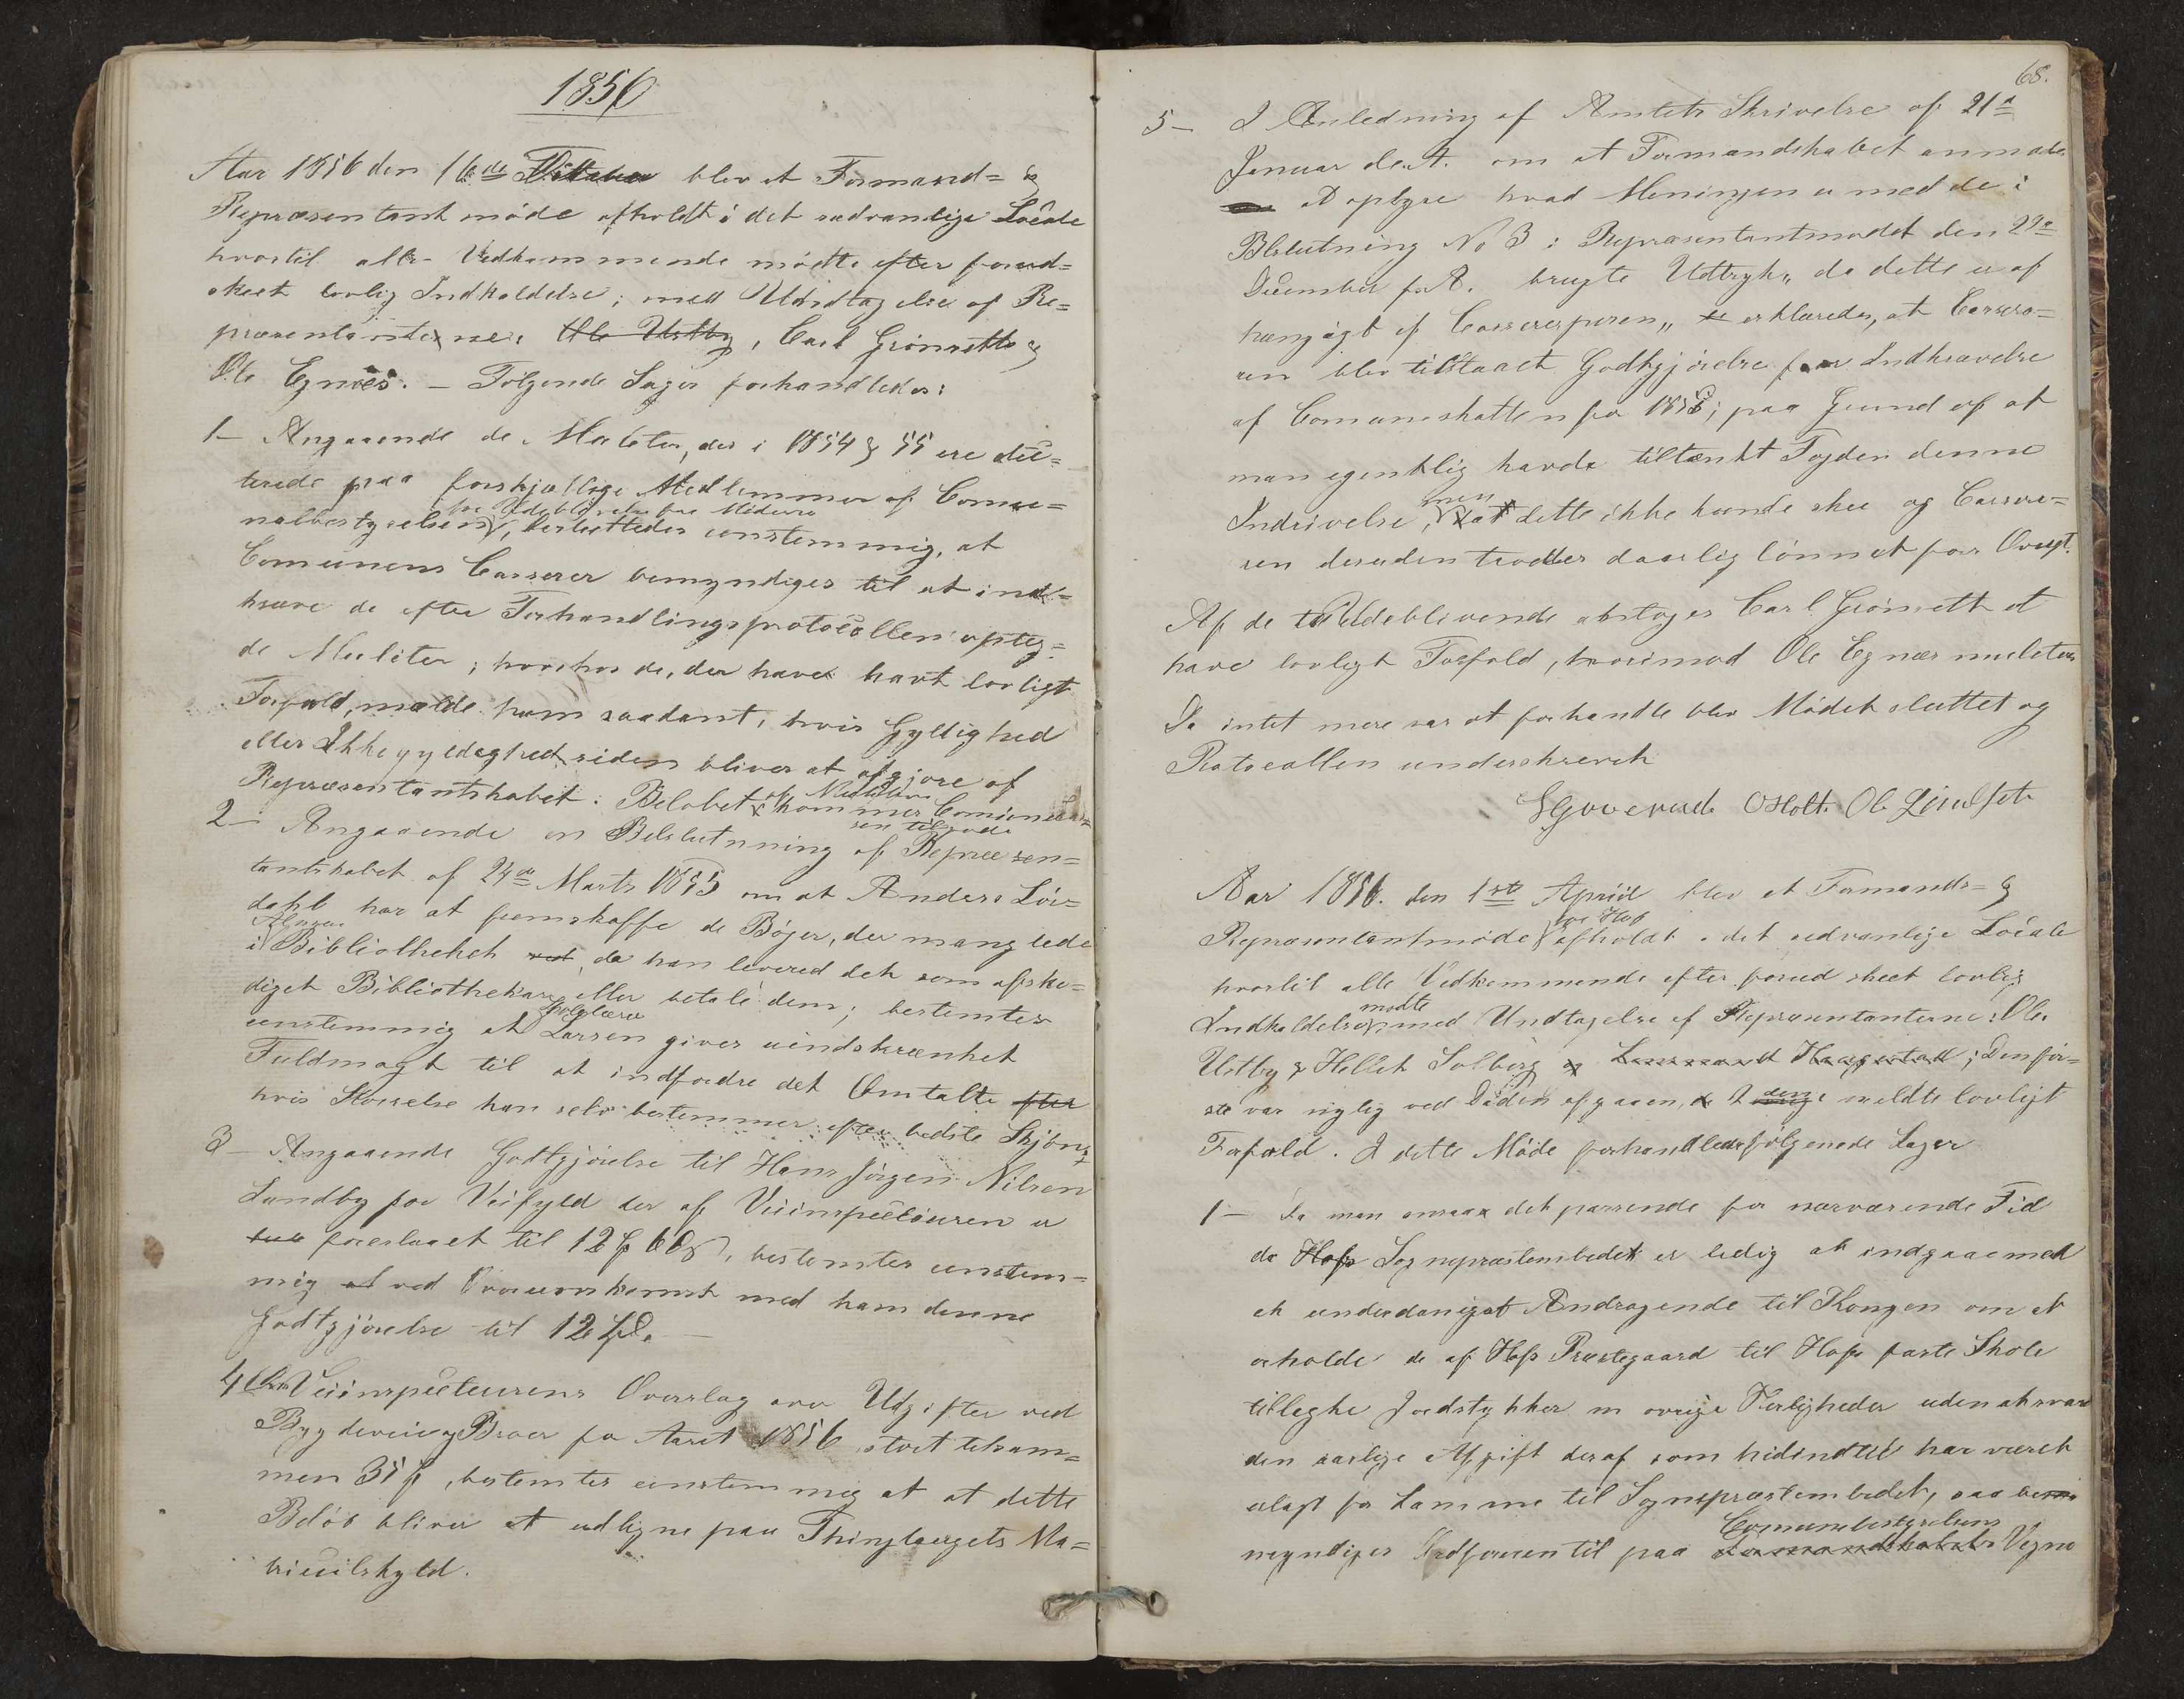 1856
Aar 1856 den 16de blev et Formand= og
Repræsentantmøde afholdt i det sædvanlige Locale
hvortil alle Vedkommende mødte efter forud=
skeet lovlig Indkaldelse; med Undtagelse af Re=
præsentanterne: Ole Ustby, Carl Grönsett og
Ole Egnæs. – Følgende Sager forhandledes:
1– Angaaende de Mulcter, der i 1854 og 55 ere dic=
terede paa forskjællige Medlemmer af Comu=
for Udeblivelse fra Møderne
nalbestyrelsen, besluttedes eenstemmig, at
Comunens Casserer bemyndiges til at ind=
kræve de efter Forhandlingsprotocollen opteg=
de Mulcter; hvorhos de, der have havt lovligt
Forfald, melde ham saadant, hvis Gyldighed
eller Ikkegyldighed siden bliver at afgjøre af
Repræsentantskabet. Beløbet af Mulcterne kommer Comunecas=
sen tilgode
2– Angaaende en Beslutning af Repræsen=
tantskabet af 24de Marts 1855 om at Anders Löv=
dahl har at fremskaffe de Bøger, der manglede
i Almue Bibliotheket ved, da han levered det som afske=
diget Bibliothekar eller betale dem; bestemtes
eenstemmig at Skolelærer Larsen gives uindskrænket
Fuldmagt til at indfordre det Omtalte efter
hvis Størrelse han selv bestemmer efter bedste Skjøn
3– Angaaende Godtgjørelse til Hans Jørgen Nilsen
Sundby for Veifyld der af Veiinspecteuren er
foreslaaet til 12 60, bestemtes eenstem=
mig at ved Overeenskomst med ham denne
Godtgjørelse til 12
4 Veiinspecteurens Overslag over Udgifter ved
Bygdeveie og Broer for Aaret 1856 stort tilsam=
men 35, bestemtes eenstemmig at at dette
Beløb bliver at udligne paa Thinglaugets Ma=
trikulskyld.
68.
5– I Anledning af Amtets Skrivelse af 21de
Januar d. A. om at Formandskabet anmodes
at oplyse hvad Meningen er med de i
Beslutning No 3 i Repræsentantmødet den 29de
December f. A. brugte Udtryk „da dette er af=
hængigt af Cassereren„ erklæredes, at Cassere=
ren blev tilstaaet Godtgjørelse for Indkrævelse
af Comuneskatten for 1853; paa Grund af at
man egentlig havde tiltænkt Fogden denne
Indrivelse, men at dette ikke kunde skee og Cassere=
ren desuden troedes daarlig lønnet for Overgt.
Af de to Udeblivende antoges Carl Grönsett at
have lovligt Forfald, hvorimod Ole Egnæs mulcteres
Da intet mere var at forhandle blev Mødet sluttet og
Protocollen underskrevet
SGoverud OHolt. Ole Lindset
Aar 1856. den 1ste April blev et Formands= og
Repræsentantmøde for Hof afholdt i det sædvanlige Locale
hvortil alle Vedkommende efter forud skeet lovlig
Indkaldelse, mødte med Undtagelse af Repræsentanterne: Ole
Ustby & Hellek Solberg og Lensmand Haagestad; Den för=
ste var nylig ved Døden afgaaen, de 2 meldte lovligt
Forfald. I dette Møde forhandledes følgende Sager
1– Da man ansaa det passende for nærværende Tid
da Hofs Sognepræstembedet er ledig at indgaae med
et underdanigst Andragende til Kongen om at
erholde de af Hofs Præstegaard til Hofs faste Skole
tillagte Jordstykker m övrige Herligheder uden at svare
den aarlige Afgift deraf som hidindtil har været
erlagt for Samme til Sognepræstembedet, saa be=
myndiges Ordføreren til paa Comunebestyrelsens Formandskabets Vegne